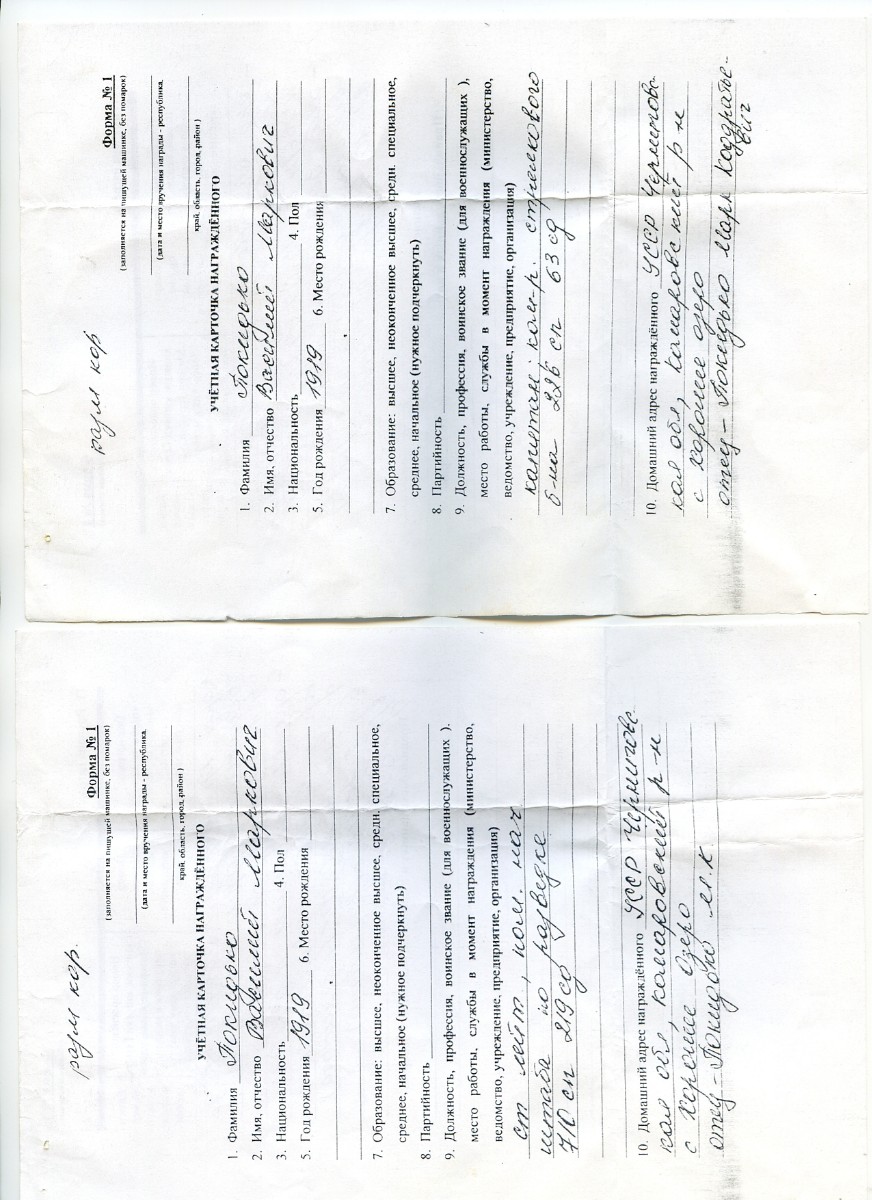 разм кор.
Форма № 1
(заполняется на пишущей машинке, без помарок)
(дата и место вручения награды - республика,
край, область, город, район)
УЧЁТНАЯ КАРТОЧКА НАГРАЖДЁННОГО
1. Фамилия Покидько
2. Имя, отчество Василий Маркович
3. Национальность 4. Пол
5. Год рождения 1919 6. Место рождения
7. Образование: высшее, неоконченное высшее, средн. специальное,
среднее, начальное (нужное подчеркнуть)
8. Партийность
9. Должность, профессия, воинское звание (для военнослужащих ).
место работы, службы в момент награждения (министерство,
ведомство, учреждение, предприятие, организация)
ст лейт, пом. нач
штаба по разведке
710 сп 219 сд
10. Домашний адрес награждённого УССР Чернигове
кая обл, Комаровский р-н
с Хорошее Озеро
отец - Покидько М.К
разм кор
Форма № 1
(заполняется на пишущей машинке, без помарок)
(дата и место вручения награды - республика,
край, область, город, район )
УЧЁТНАЯ КАРТОЧКА НАГРАЖДЁННОГО
1. Фамилия Покидько
2. Имя, отчество Василий Маркович
3. Национальность 4. Пол
5. Год рождения 1919 6. Место рождения
7. Образование: высшее, неоконченное высшее, средн. специальное,
среднее, начальное (нужное подчеркнуть)
8. Партийность
9. Должность, профессия, воинское звание (для военнослужащих ),
место работы, службы в момент награждения (министерство,
ведомство, учреждение, предприятие, организация)
капитан: ком-р. стрелкового
б-на 226 сп 63 сд
10. Домашний адрес награждённого УССР Чернигове
кая обл, Комаровский р-н
с Хорошее озеро
отец - Покидько Марк Кондратье-
вич